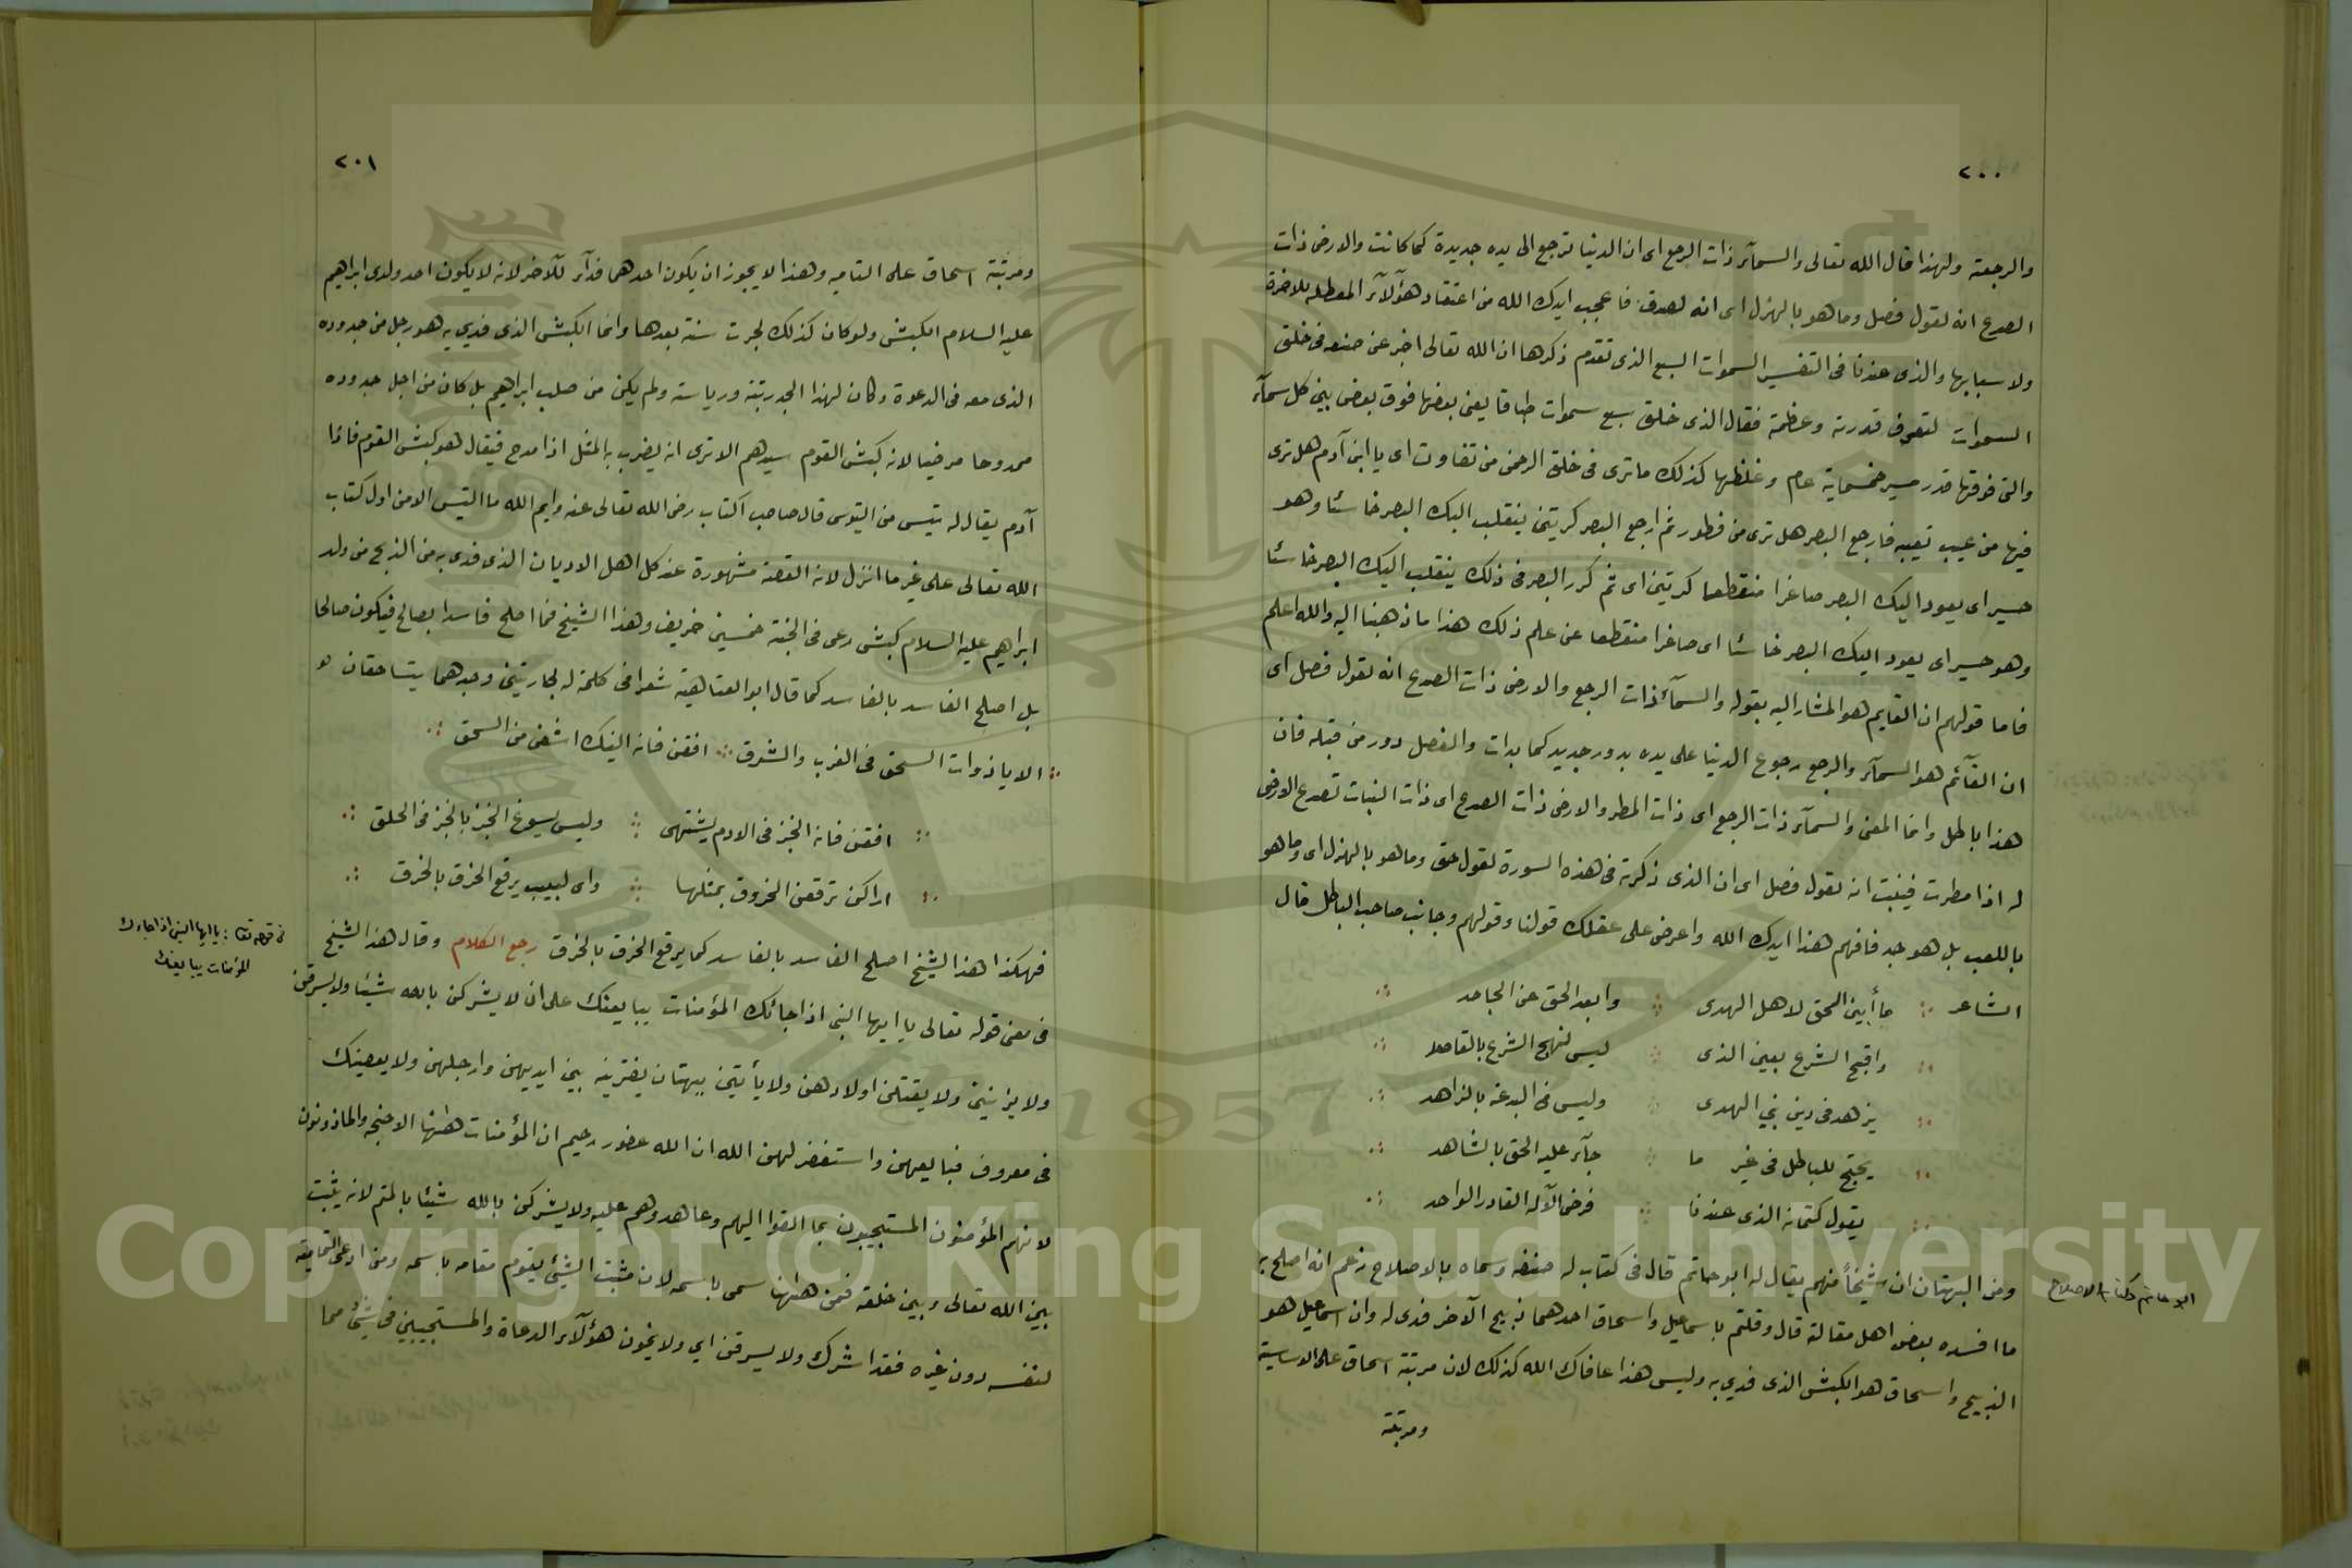 ٢٠٠
والرجعة ولهذا قال الله تعالى والسمآء ذات الرجع اى ان الدنيا ترجع الى يده جديدة كما كانت والارض ذات
الصدع انه لقول فصل وما هو بالهزل اى انه لصدق فاعجب ايدك الله من اعتقاد هؤلآء المعطلة للاخرة
ولاسبابها والذى عندنا فى التفسير السموات السبع الذى تقدم ذكرها ان الله تعالى اخبر عن صنعه فى خلق
السموات لتعرف قدرته وعظمة فقال الذى خلق سبع سموات طباقا يعنى بعضها فوق بعض بين كل سمآء
والتى فوقها قدر مسير خمسماية عام وغلظها كذلك ما ترى فى خلق الرحمن من تفاوت اى يا ابن آدم هل ترى
فيها من عيب تعيبه فارجع البصر هل ترى من فطور ثم ارجع البصر كرتين ينقلب اليك البصر خاسئا وهو
حسير اى يعود اليك البصر صاغرا منقطعا كرتين اى ثم كرر البصر فى ذلك ينقلب اليك البصر خاسئا
وهو حسير اى يعود اليك البصر خاسئا اى صاغرا منقطعا عن علم ذلك هذا ما ذهبنا اليه والله اعلم
فاما قولهم ان القايم هو المشار اليه بقوله والسمآء ذات الرجع والارض ذات الصدع انه لقول فصل اى
ان القآئم هو السمآء والرجع رجوع الدنيا على يده بدور جديد كما بدات والفصل دور من قبله فان
هذا باطل وانما المعنى والسمآء ذات الرجع اى ذات المطر والارض ذات الصدع اى ذات النبات تصدع الارض
له اذا مطرت فينبت انه لقول فصل اى ان الذى ذكرته فى هذه السورة لقول حق وما هو بالهزل اى وما هو
باللعب بل هو جد فافهم هذا ايدك الله واعرض على عقلك قولنا وقولهم وجانب صاحب الباطل قال
الشاعر ما أبين الحق لاهل الهدى وابعد الحق عن الجاحد
واقبح الشرع بعين الذى ليس لنهج الشرع بالقاصد
يزهد فى دين نبي الهدى وليس فى البدعة بالزاهد
يحتج للباطل فى غير ما جآء عليه الحق بالشاهد
يقول كتمانه الذى عندنا فرض الآله القادر الواحد
ومن البهتان ان شيخاً منهم يقال له ابو حاتم قال فى كتاب له صنفه وسماه بالاصلاح زعم انه اصلح به
ما افسده بعض اهل مقالة قال وقلتم باسماعيل واسحاق احدهما ذبيح الآخر فدى له وان اسماعيل هو
الذبيح واسحاق هو الكبش الذى فدي به وليس هذا عافاك الله كذلك لان مرتبة اسحاق على الاساسية
ومرتبة
ابو حاتم كتاب الاصلاح
٢٠١
ومرتبة اسحاق على التاميه وهذا لا يجوز ان يكون احدهما فدآء للآخر لانه لا يكون احد ولدى ابراهيم
عليه السلام الكبش ولو كان كذلك لجرت سنة بعدها وانما الكبش الذى فدي به هو رجل من حدوده
الذى معه فى الدعوة وكان لهذا الحد رتبة ورياسة ولم يكن من صلب ابراهيم بل كان من اجل حدوده
ممدوحا مرضيا لانه كبش القوم سيدهم الا ترى انه يضرب به المثل اذا مدح فيقال هو كبش القوم فاذا
آدم يقال له تيس من التيوس قال صاحب الكتاب رضى الله تعالى عنه وايم الله ما التيس الا من اول كتاب
الله تعالى على غير ما انزل لانه القصة مشهورة عند كل اهل الاديان الذى فدى به من الذبح من ولد
ابراهيم عليه السلام كبش رعى فى الجنة خمسين خريف وهذا الشيخ فما اصلح فاسدا بصالح فيكون صالحا
بل اصلح الفاسد بالفاسد كما قال ابو العتاهية شعرا فى كلمة له لجاريتين وجدهما يتساحقان
الا يا ذوات السحق فى الغرب والشرق افقن فانه النيك اشفى من السحق
افقن فانه الخبز فى الادم يشتهى وليس يسوغ الخبز بالخبز فى الحلق
اراكن ترقعن الخروق بمثلها واى لبيب يرقع الخرق بالخرق
فهكذا هذا الشيخ اصلح الفاسد بالفاسد كما يرقع الخرق بالخرق رجع الكلام وقال هذا الشيخ
فى معنى قوله تعالى يا ايها النبى اذا جائك المؤمنات يبايعنك على ان لا يشركن بالله شيئا ولا يسرقن
ولا يزنين ولا يقتلن اولادهن ولا يأتين ببهتان يفترينه بين ايديهن وارجلهن ولا يعصينك
فى معروف فبايعهن واستغفر لهن الله ان الله غفور رحيم ان المؤمنات ههنا الاجنحه والماذونون
لانهم المؤمنون المستجيبون بما القوا اليهم وعاهدوهم عليه ولا يشركن بالله شيئا بالمتم لانه يثبت
بين الله تعالى وبين خلقه فمن ههنا سمى باسمه لان مثبت الشئ يقوم مقامه باسمه ومن ادعى التمامية
لنفسه دون غيره فقد اشرك ولا يسرقن اي ولا يخون هؤلآء الدعاة والمستجيبين فى شئ مما
فى قوله تعا : يا ايها النبى اذا جاءك
المؤمنات يبايعنك
Copyright © King Saud University
1957